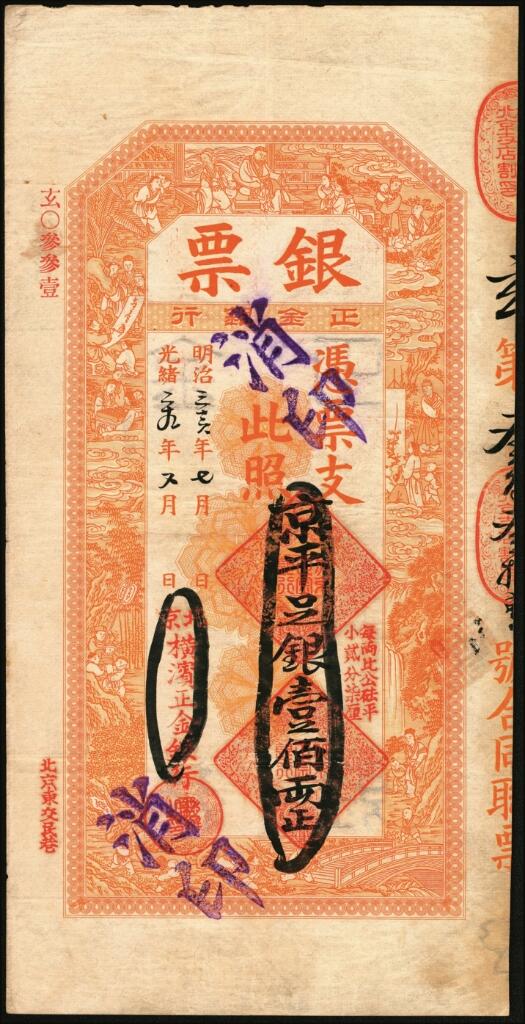 銀票
正金銀行
憑票支
此照
京平足銀壹佰両正
每兩比公砝平
小貳分柒厘
明治三十六年七月 日
光緒 年 月 日
北京橫濱正金銀行
消印
消印
玄〇參參壹
北京東交民巷
北京支店割印
玄第
號合同聯票